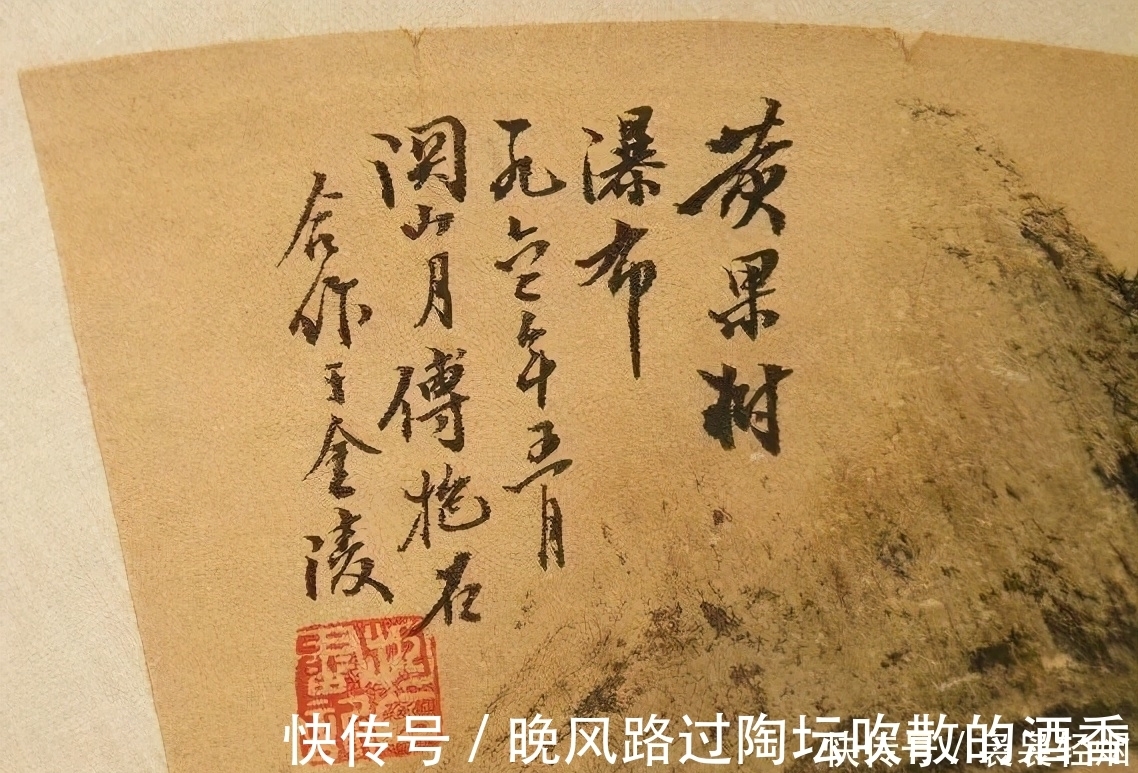 黄果树
瀑布
一九六年五月
関山月傅抱石
合作于金陵
快传号 / 晚风路过陶坛吹散的酒香